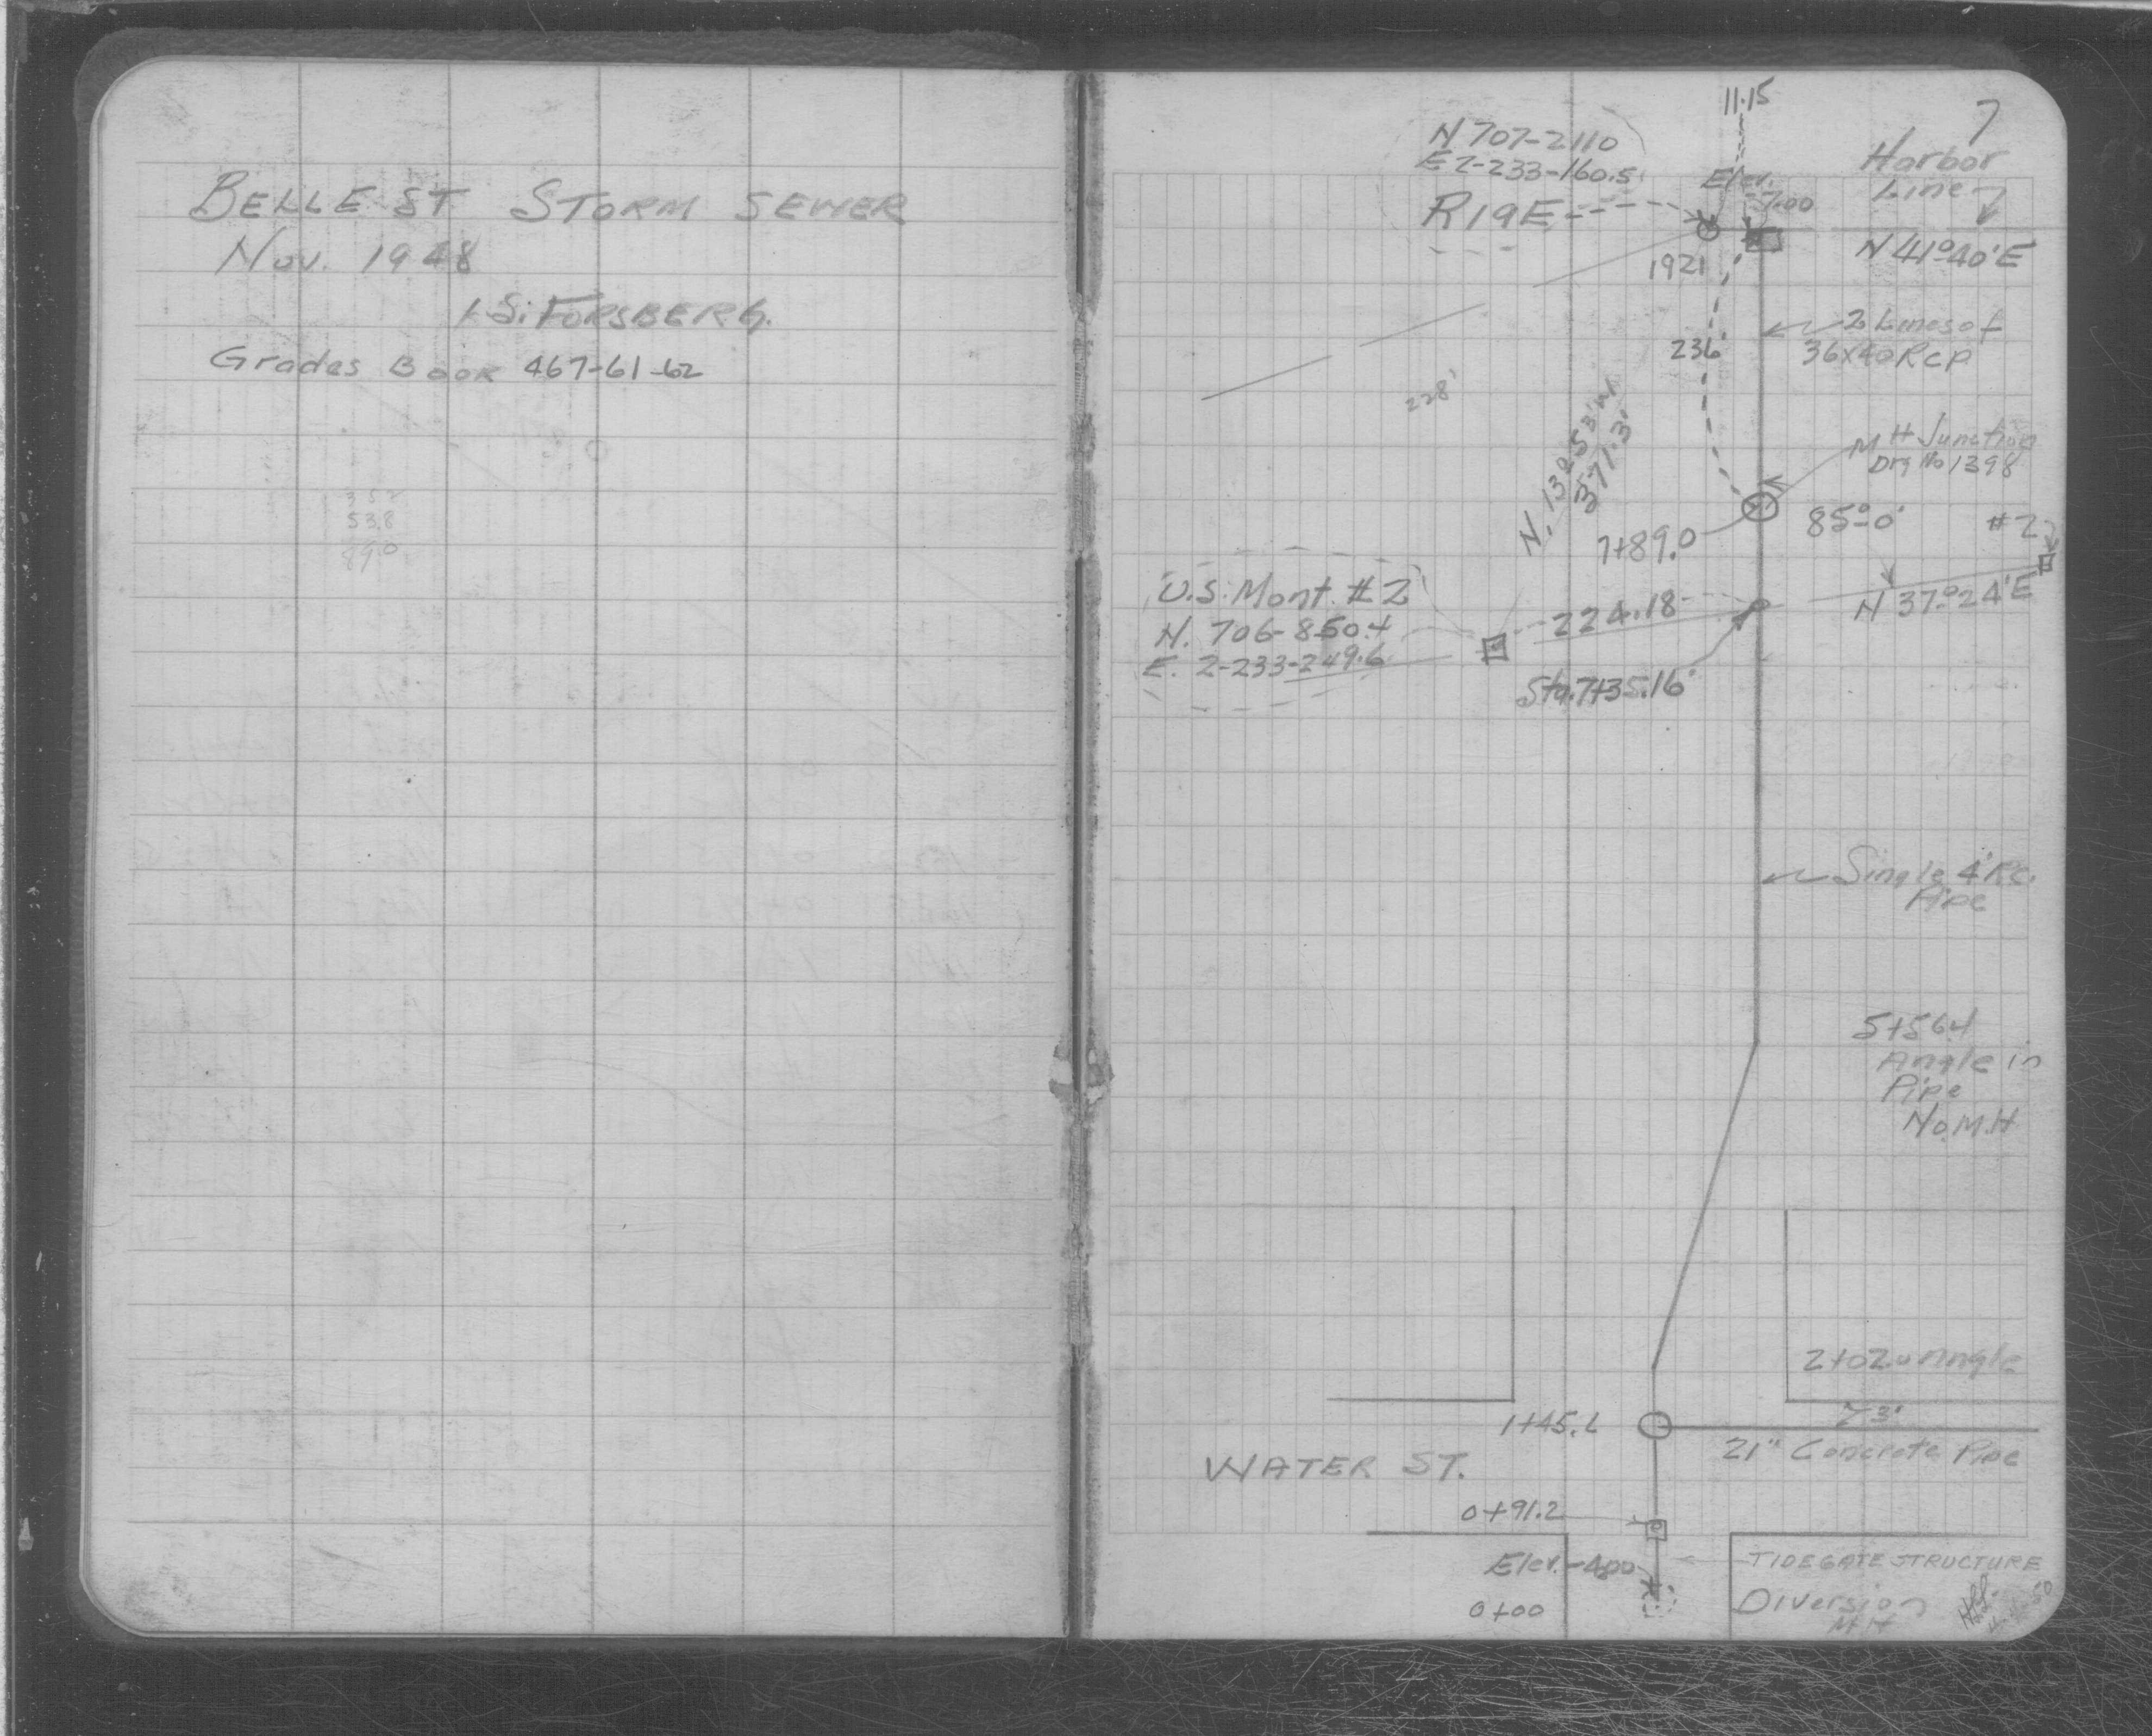 BELLE ST STORM SEWER
Nov. 1948
I.S. FORSBERG.
Grades Book 467-61-62
53.8
89.0
7
11.15
N 707-2110
E 2-233-160.5
R19E
Elev.
-7.00
Harbor
Line
N 41°40'E
1921
236'
2 Lines of
36x40 RCP
228'
N. 13°53'W
371.3'
M H Junction
Drg No 1398
7+89.0
85°-0'
#2
U.S. Mont. #2
N. 706-850.4
E. 2-233-249.6
224.18
N 37°24'E
Sta. 7+35.16
Single 4' R.C.
Pipe
5+56.4
Angle in
Pipe
No M.H
2+02.0 Angle
73'
1+45.2
21" Concrete Pipe
WATER ST.
0+91.2
Elev. -4.00
TIDEGATE STRUCTURE
0+00
Diversion
MH